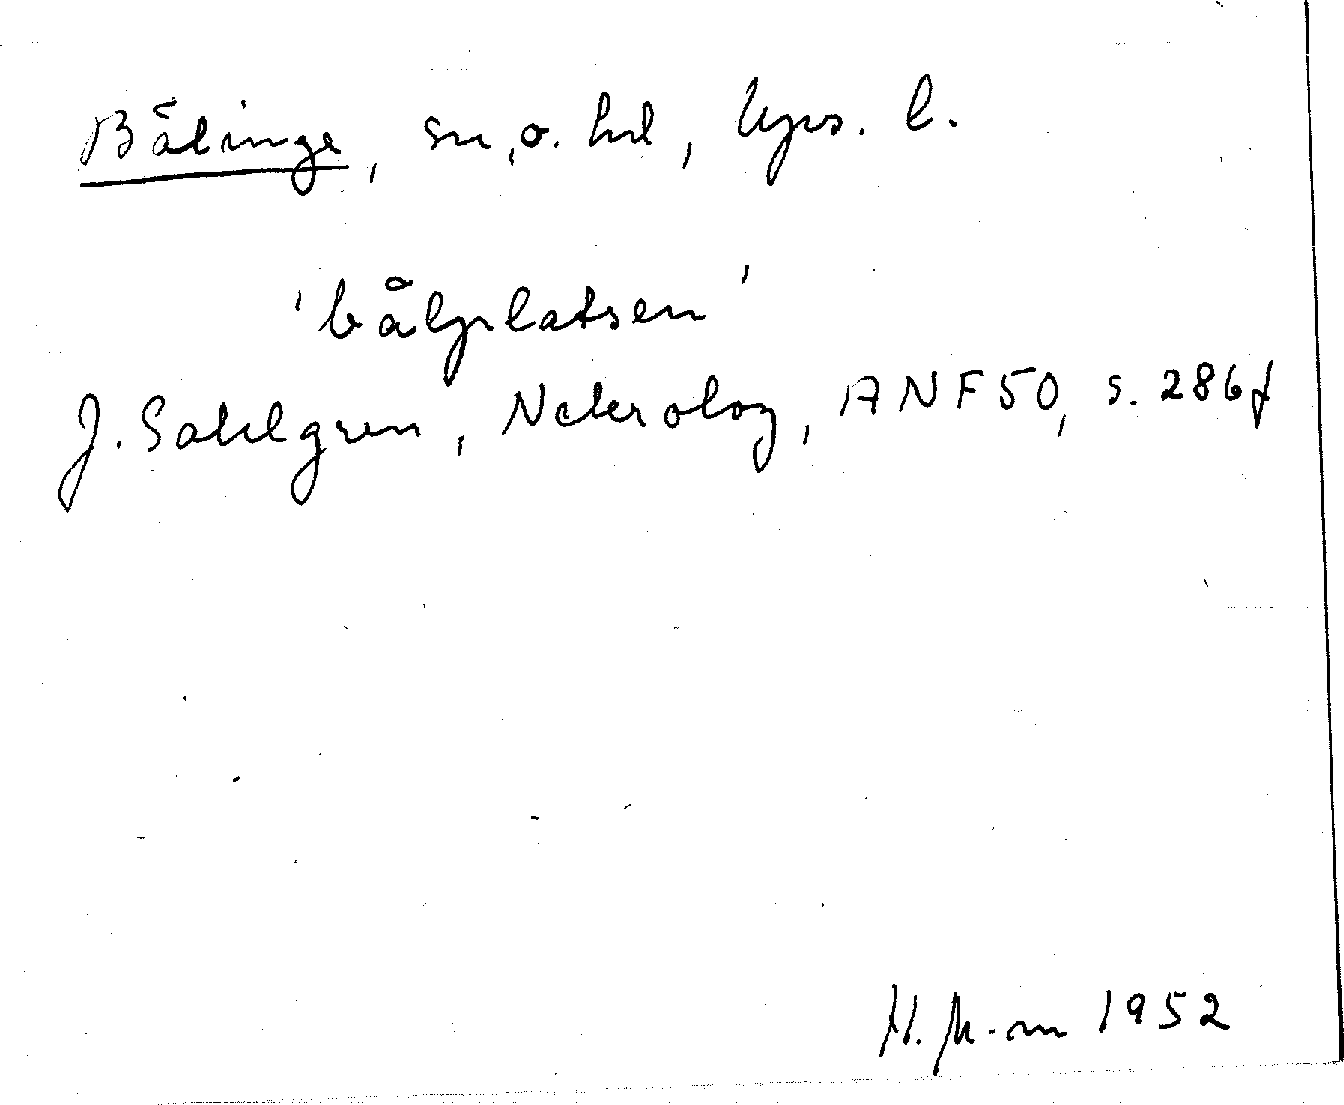 Bälinge, sn, o. hd, Upps. l.
'bålplatsen'
J. Sahlgren, Nekrolog, ANF 50, s. 286 f
1952